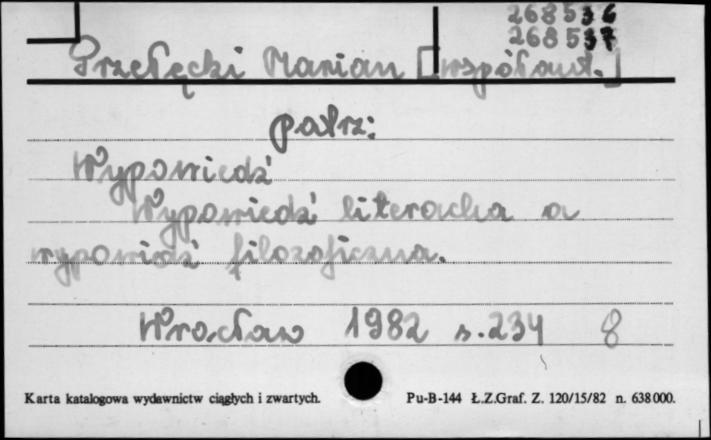 268536
268537
Przełęcki Marian [współaut.]
patrz:
Wypowiedź
Wypowiedź literacka a
wypowiedź filozoficzna.
Wrocław 1982 s. 234 8
Karta katalogowa wydawnictw ciągłych i zwartych. Pu-B-144 Ł.Z.Graf. Z. 120/15/82 n. 638000.